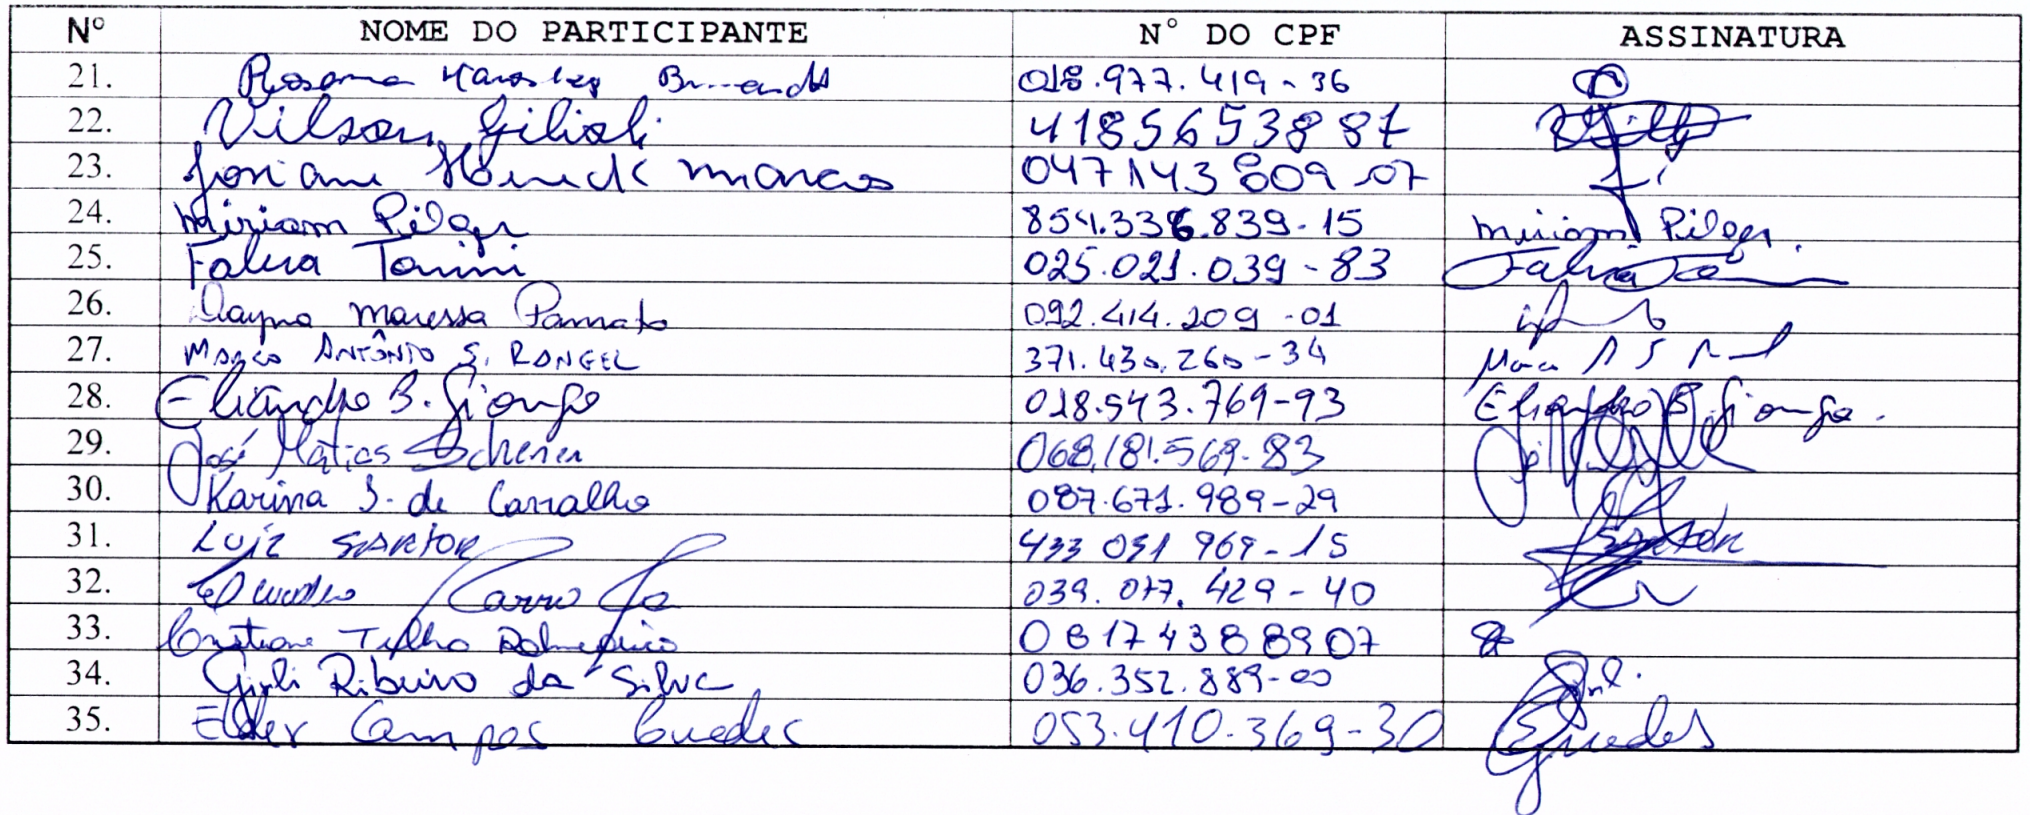 Nº NOME DO PARTICIPANTE N° DO CPF ASSINATURA
21. Rosana 018.977.419-36
22. Vilson Gilioli 41856538887
23. Josiane Marcos 047143809-07
24. Miriam Pilger 854.336.839-15 Miriam Pilger.
25. Talina Tonini 025.021.039-83
26. Dayna Maressa Pannato 092.414.209-01
27. MARCO ANTÔNIO S. RANGEL 371.430.260-34
28. Eliandro B. Giongo 018.543.769-93 Eliandro B. Giongo.
29. José Matias Scherer 068.181.569-83
30. Karina S. de Carvalho 087.671.989-29
31. LUIZ SARTOR 433 051 969-15 Sartor
32. 039.077.429-40
33. Cristiane 06174388907
34. Gisli Ribeiro da Silva 036.352.889-00
35. Elder Campos Guedes 053.410.369-30 Guedes